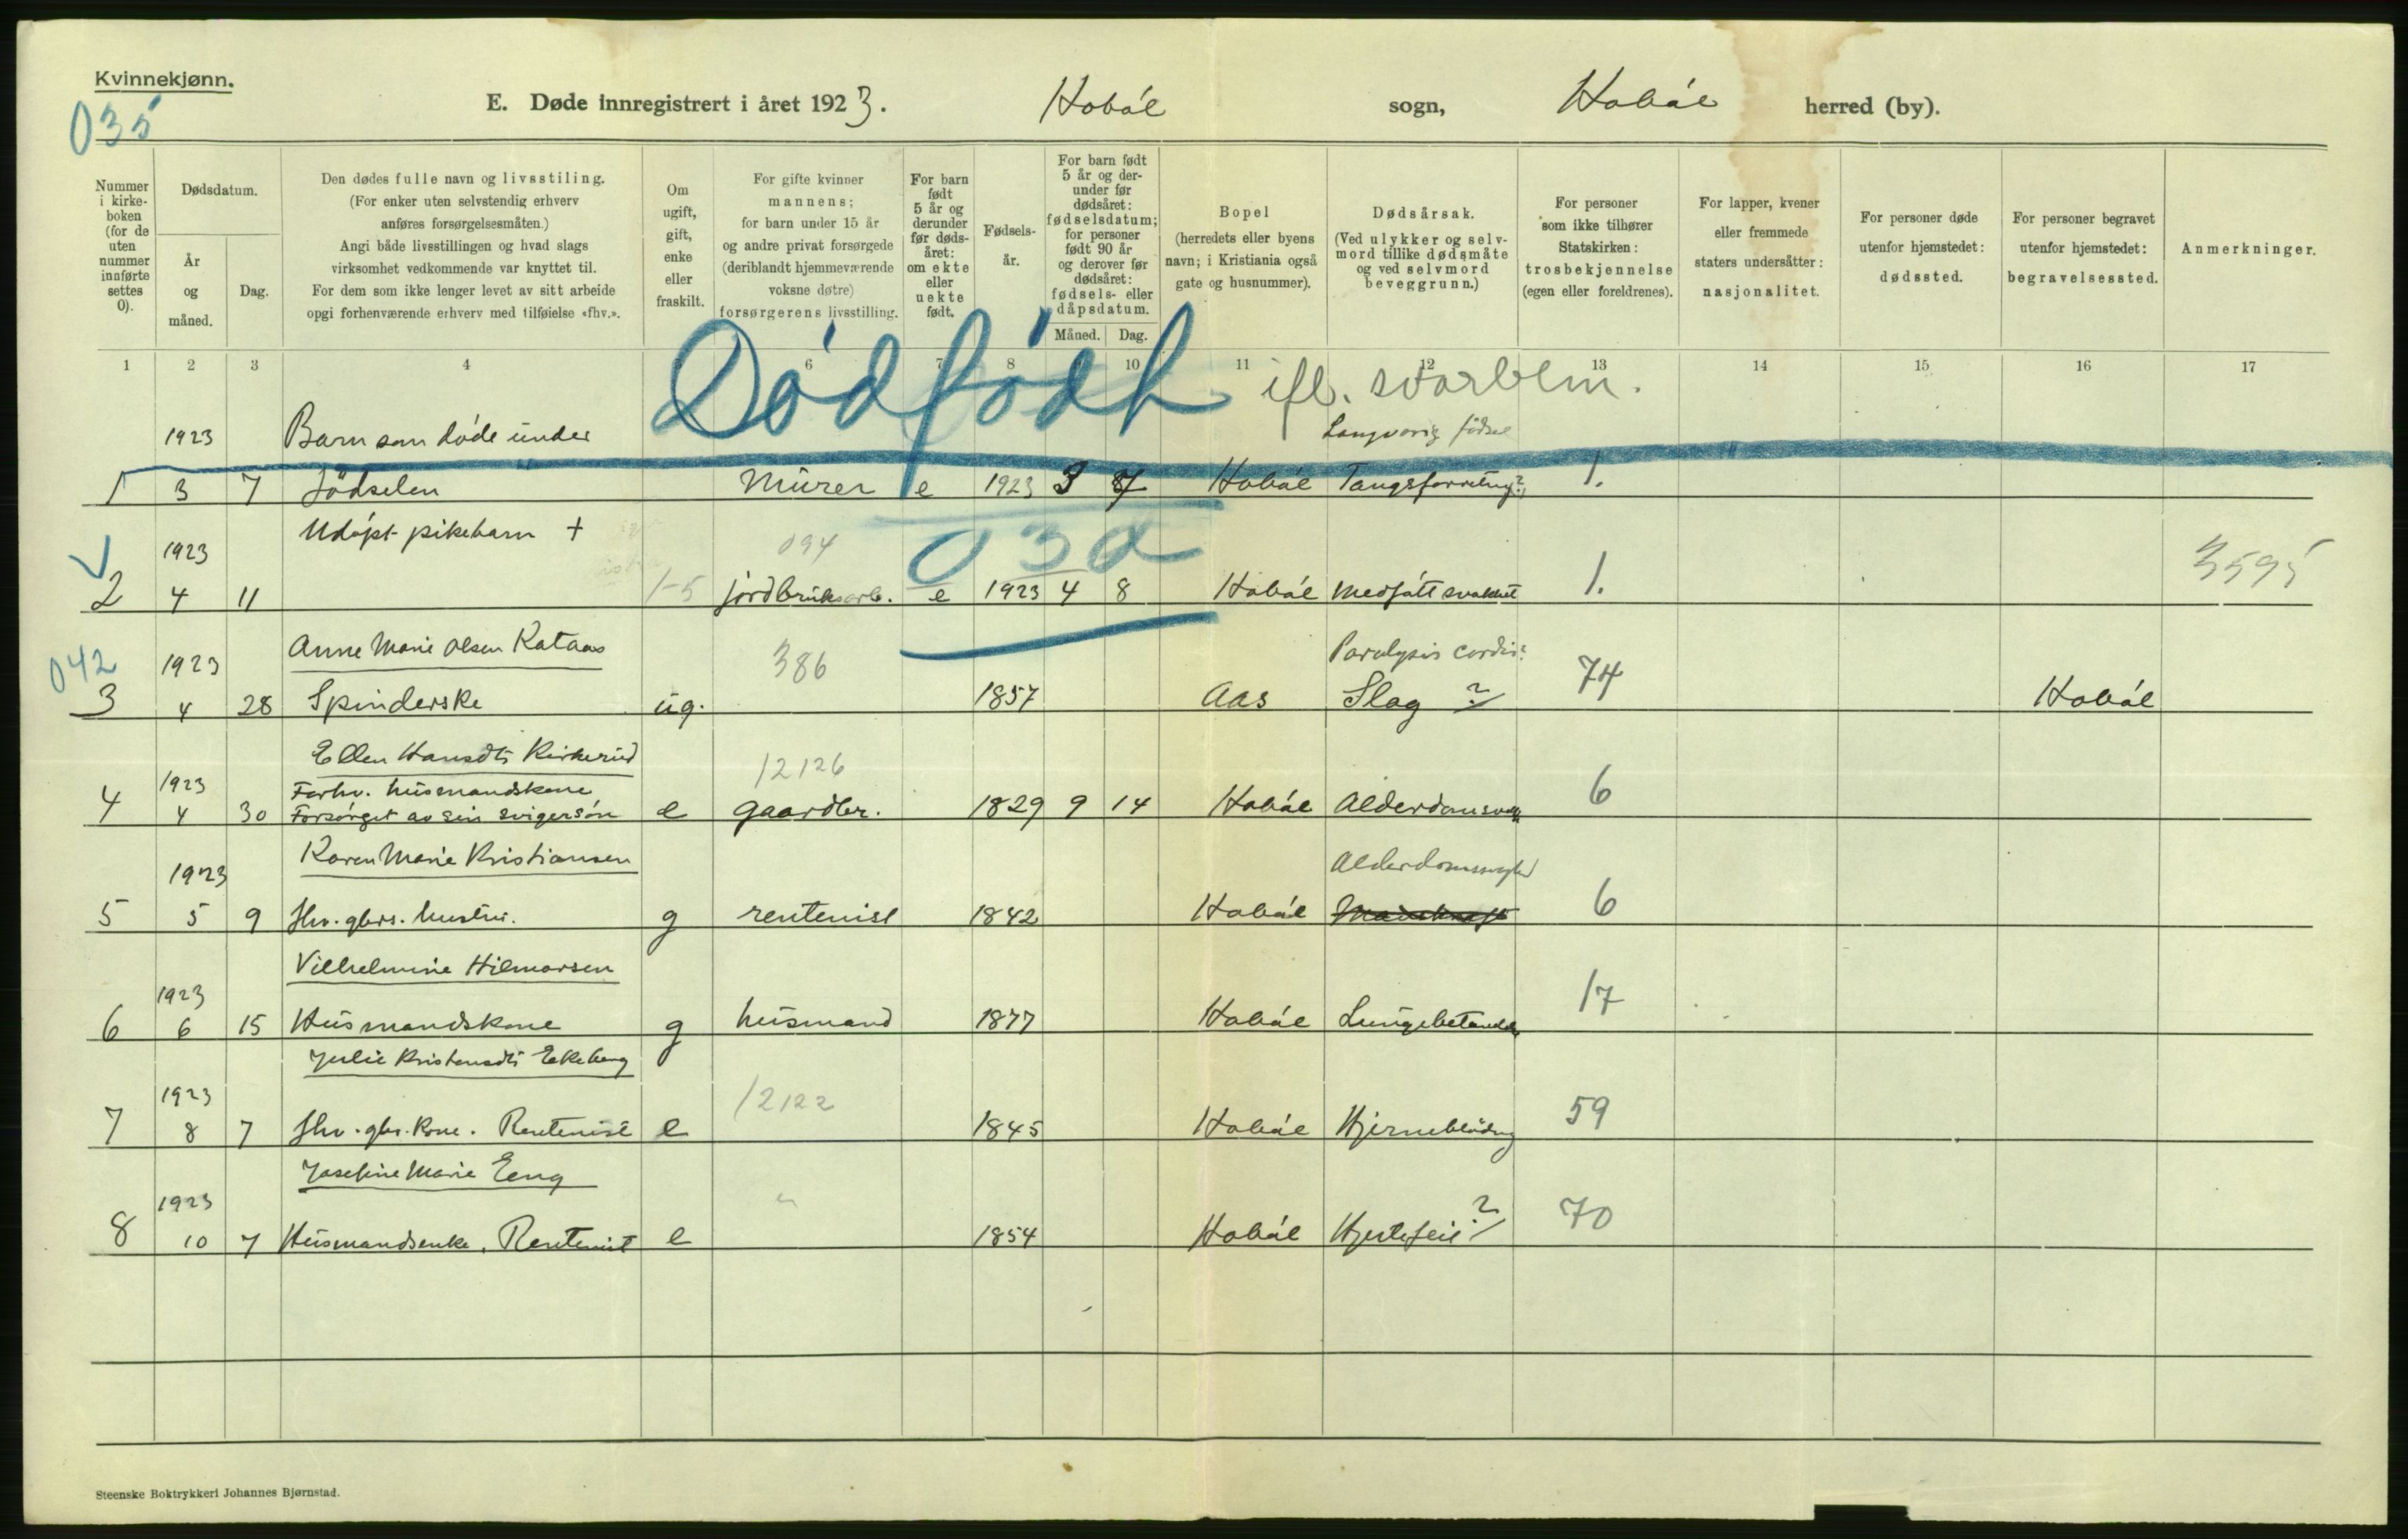 Kvinnekjønn.
035
E. Døde innregistrert i året 1923. Hobøl sogn, Hobøl herred (by).
Nummer i kirke-boken (for de uten nummer innførte settes 0).
Dødsdatum.
År og måned.
Dag.
Den dødes fulle navn og livsstiling.
(For enker uten selvstendig erhverv
anføres forsørgelsesmåten.)
Angi både livsstillingen og hvad slags
virksomhet vedkommende var knyttet til.
For dem som ikke lenger levet av sitt arbeide
opgi forhenværende erhverv med tilføielse «fhv.».
Om ugift, gift, enke eller fraskilt.
For gifte kvinner
mannens;
for barn under 15 år
og andre privat forsørgede
(deriblandt hjemmeværende
voksne døtre)
forsørgerens livsstilling.
For barn født 5 år og derunder før døds-året: om ekte eller uekte født.
Fødsels-år.
For barn født 5 år og der-under før dødsåret: fødselsdatum; for personer født 90 år og derover før dødsåret: fødsels- eller dåpsdatum.
Måned. Dag.
Bopel
(herredets eller byens
navn; i Kristiania også
gate og husnummer).
Dødsårsak.
(Ved ulykker og selv-
mord tillike dødsmåte
og ved selvmord
beveggrunn.)
For personer
som ikke tilhører
Statskirken:
trosbekjennelse
(egen eller foreldrenes).
For lapper, kvener
eller fremmede
staters undersåtter:
nasjonalitet.
For personer døde
utenfor hjemstedet:
dødssted.
For personer begravet
utenfor hjemstedet:
begravelsessted.
Anmerkninger.
1 2 3 4 6 7 8 10 11 12 13 14 15 16 17
Dødfødt ifl. svarblm.
1923 Barn som døde under Langvarig fødsel
1 3 7 fødselen Murer e 1923 3 7 Hobøl Tangsforretng? 1.
03a
Udøpt pikebarn +
1923 094 3595
2 4 11 1-5 jordbruksarb. e 1923 4 8 Hobøl medfått svakhet 1.
042 1923 Anne Marie Olsen Kataas 386 Paralysis cordis?
3 4 28 Spinderske ug. 1857 Aas Slag ? 74 Hobøl
Ellen Hansdtr Kirkerud 12126
1923 Forhv. husmandskone
4 4 30 Forsørget av sin svigersøn e gaardbr. 1829 9 14 Hobøl Alderdomsvak 6
1923 Karen Marie Kristiansen Alderdomssvaghed
5 5 9 fhv. gbrs. hustru. g rentenist 1842 Hobøl 6
1923 Vilhelmine Hilmarsen
6 6 15 Husmandskone g husmand 1877 Hobøl Lungebetændelse 17
Julie Kristensdtr Eekeberg
1923 12122
7 8 7 fhv. gbr. kone. Rentenist e 1845 Hobøl Hjerneblødng 59
Josefine Marie Eeng
1923 "
8 10 7 Husmandsenke. Rentenist e 1854 Hobøl Hjertefeil ? 70
Steenske Boktrykkeri Johannes Bjørnstad.